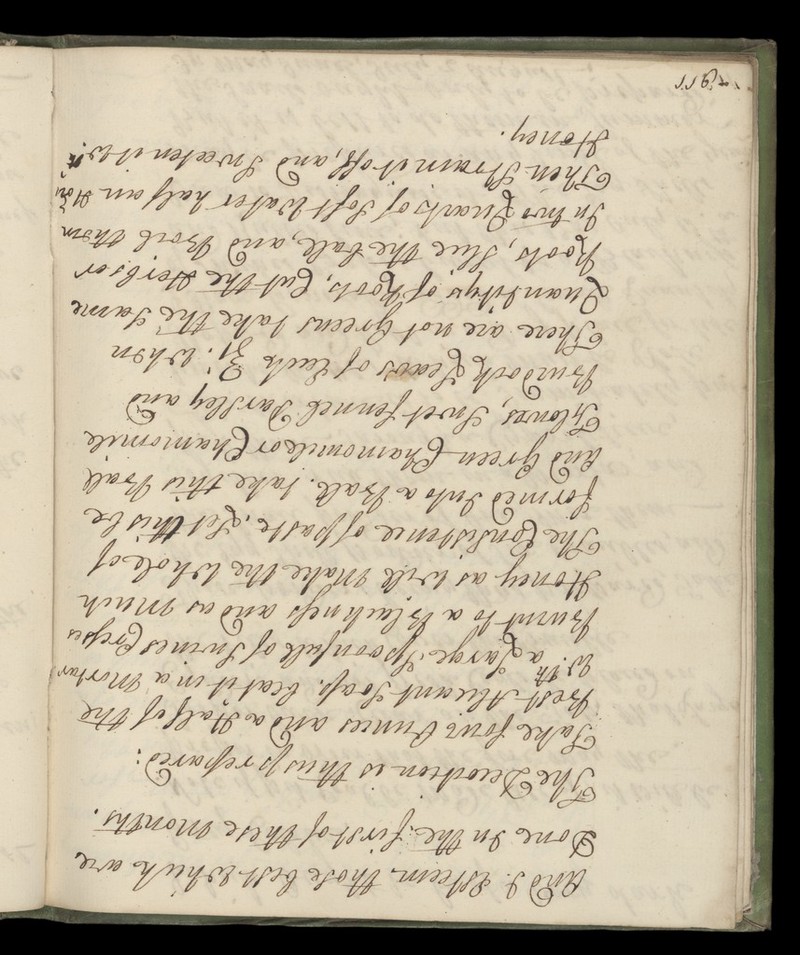 And I Esteem those best which are
Done In the first of these Months.
The Decoction is thus prepared:
Take four Ounces and a Half of the
Best Alicant Soap, beat it in a Mortar
W.th a Large Spoonfull of Swines Cresses
Burnt to a Blackness and as Much
Honey as will Make the Whole of
The Consistence of paste, Let this be
formed Into a Ball. take this Ball
and Green Chamomile or Chamomile
Flowers, Sweet fennel Parsley and
Burdock Leaves of Each ℥j: when
There are not Greens take the Same
Quantitys of Roots, Cut the Herbs or
Roots, slice the ball, and Boil them
In two Quarts of Soft Water half an Hour
Then Strain it off, and Sweeten it w.th
Honey.